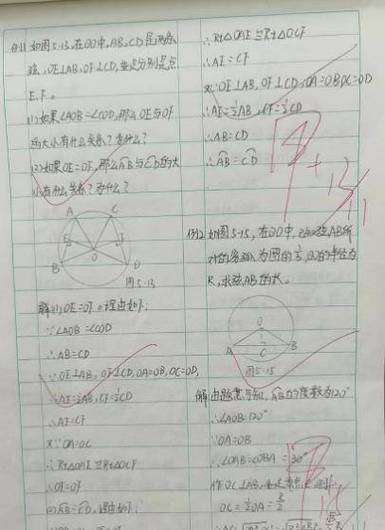 例1 如图5-13,在⊙O中,AB,CD是两条
弦,OE⊥AB,OF⊥CD,垂足分别是点
E,F。
(1)如果∠AOB=∠COD,那么OE与OF
的大小有什么关系?为什么?
(2)如果OE=OF,那么AB与CD的大
小有什么关系?为什么?
A
C
E
F
O
B
D
图5-13
解:(1)OE=OF,理由如下:
∵∠AOB=∠COD
∴AB=CD
∵OE⊥AB,OF⊥CD,OA=OB,OC=OD,
∴AE=½AB,CF=½CD
∴AE=CF
又∵OA=OC
∴Rt△OAE≌Rt△OCF
∴OE=OF
∴Rt△OAE≌Rt△OCF
∴AE=CF
又∵OE⊥AB,OF⊥CD,OA=OB,OC=OD
∴AE=½AB,CF=½CD
∴AB=CD
∴AB=CD
例2 如图5-15,在⊙O中,
R,求弦AB的长。
O
A
C
B
图5-15
解:由题意可知,AB的度数为120°
∴∠AOB=120°
∵OA=OB
∴∠OAB=∠OBA=30°
OC=½OA=R/2